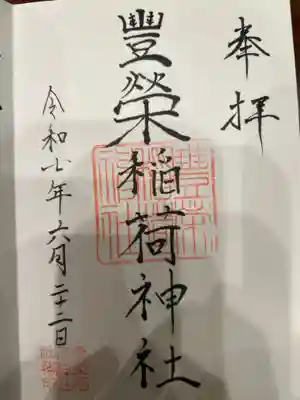 奉拝
豐榮稲荷神社
令和七年六月二十二日